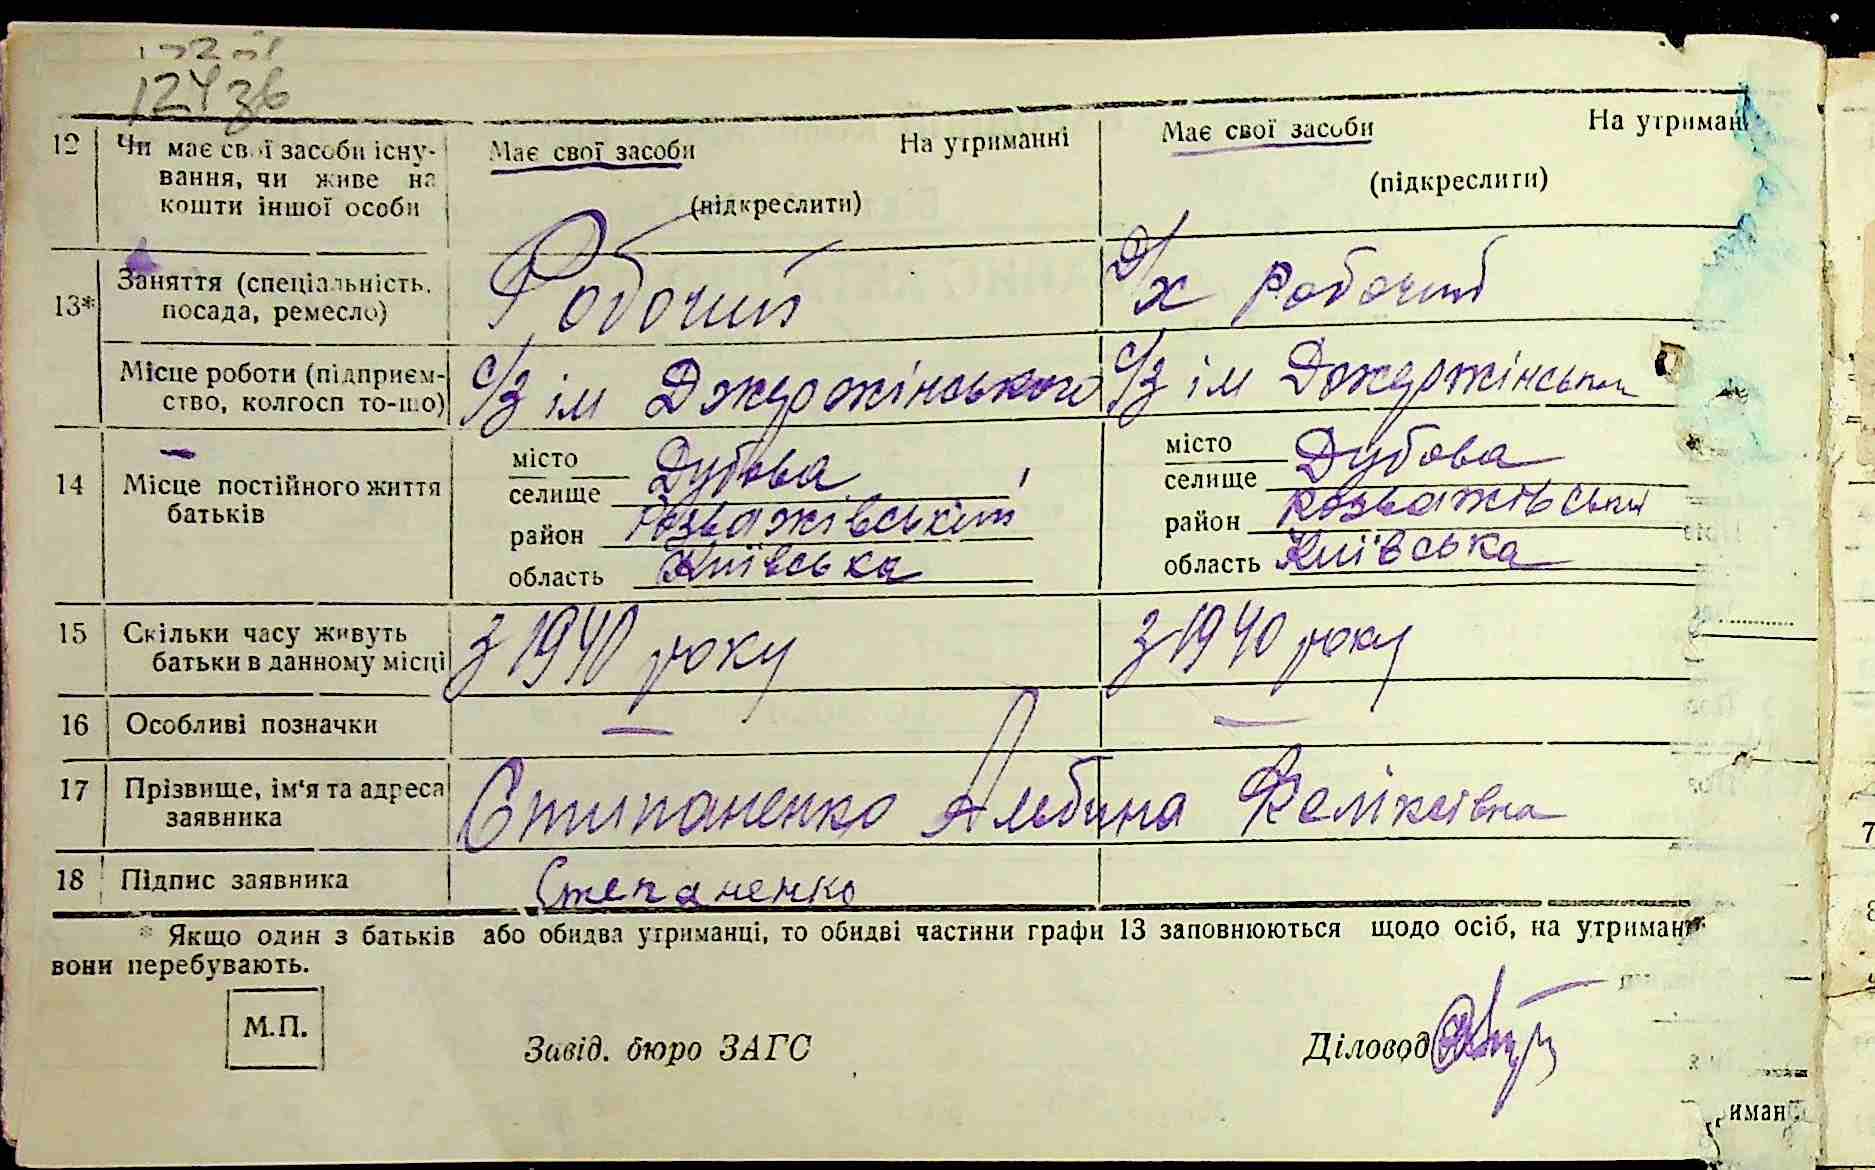 124 зв
12 Чи має свої засоби існу- Має свої засоби На утриманні Має свої засоби На утриман
вання, чи живе на (підкреслити) (підкреслити)
кошти іншої особи
13* Заняття (спеціальність, Робочий Р/х робочий
посада, ремесло)
Місце роботи (підприєм- С/з ім Джержінського С/з ім Джержінськ
ство, колгосп то-що)
14 Місце постійного життя місто Дубова місто Дубова
батьків селище селище
район Розважівський район Розважівськи
область Київська область Київська
15 Скільки часу живуть З 1940 року З 1940 року
батьки в данному місці
16 Особливі позначки — —
17 Прізвище, ім'я та адреса Стипаненко Альбина Феліксівна
заявника
18 Підпис заявника Степаненко
* Якщо один з батьків або обидва утриманці, то обидві частини графи 13 заповнюються щодо осіб, на утриман
вони перебувають.
М.П. Завід. бюро ЗАГС Діловод
иман